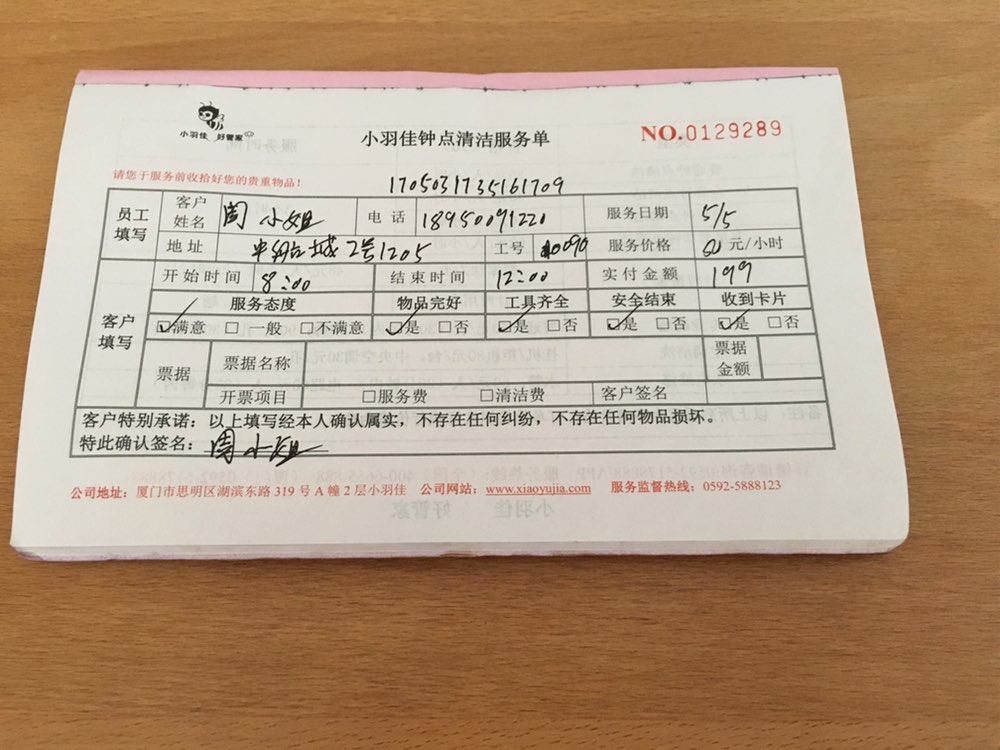 小羽佳 好管家
小羽佳钟点清洁服务单
NO.0129289
请您于服务前收拾好您的贵重物品！
1705031735161709
员工填写 客户姓名 周小姐 电话 18950091220 服务日期 5/5
地址 城2号1205 工号 服务价格 元/小时
客户填写 开始时间 8:00 结束时间 12:00 实付金额 199
服务态度 物品完好 工具齐全 安全结束 收到卡片
☑满意 □一般 □不满意 ☑是 □否 ☑是 □否 ☑是 □否 ☑是 □否
票据 票据名称 票据金额
开票项目 □服务费 □清洁费 客户签名
客户特别承诺：以上填写经本人确认属实，不存在任何纠纷，不存在任何物品损坏。
特此确认签名：周小姐
公司地址：厦门市思明区湖滨东路 319 号 A 幢 2 层小羽佳 公司网站：www.xiaoyujia.com 服务监督热线：0592-5888123